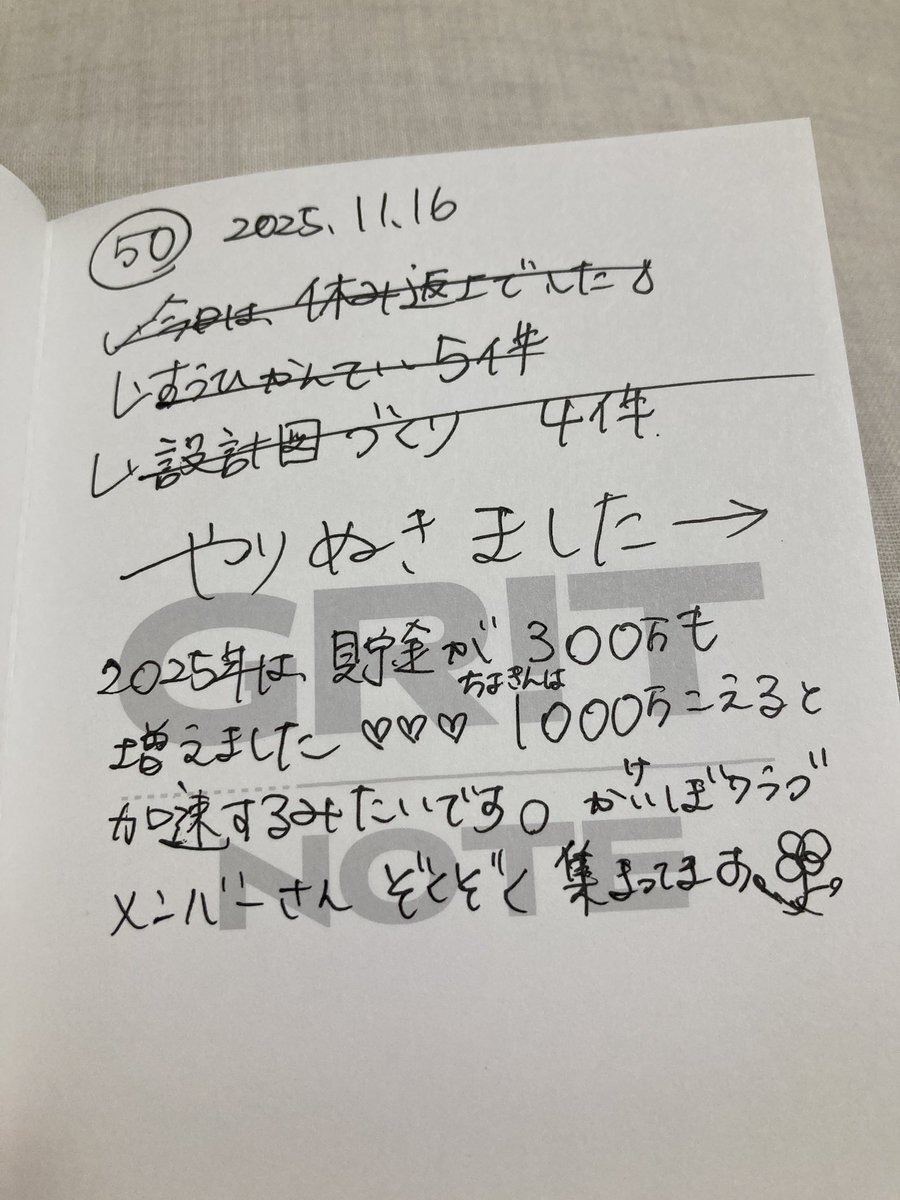 50 2025.11.16
レ今日は、休み返上でした!
レすうひかんてい 5件
レ設計図づくり 4件
やりぬきました→
GRIT
2025年は、貯金が300万も
ちょきんは
増えました♡♡♡ 1000万こえると
加速するみたいです。かけいぼクラブ
NOTE
メンバーさん ぞくぞく 集まってます